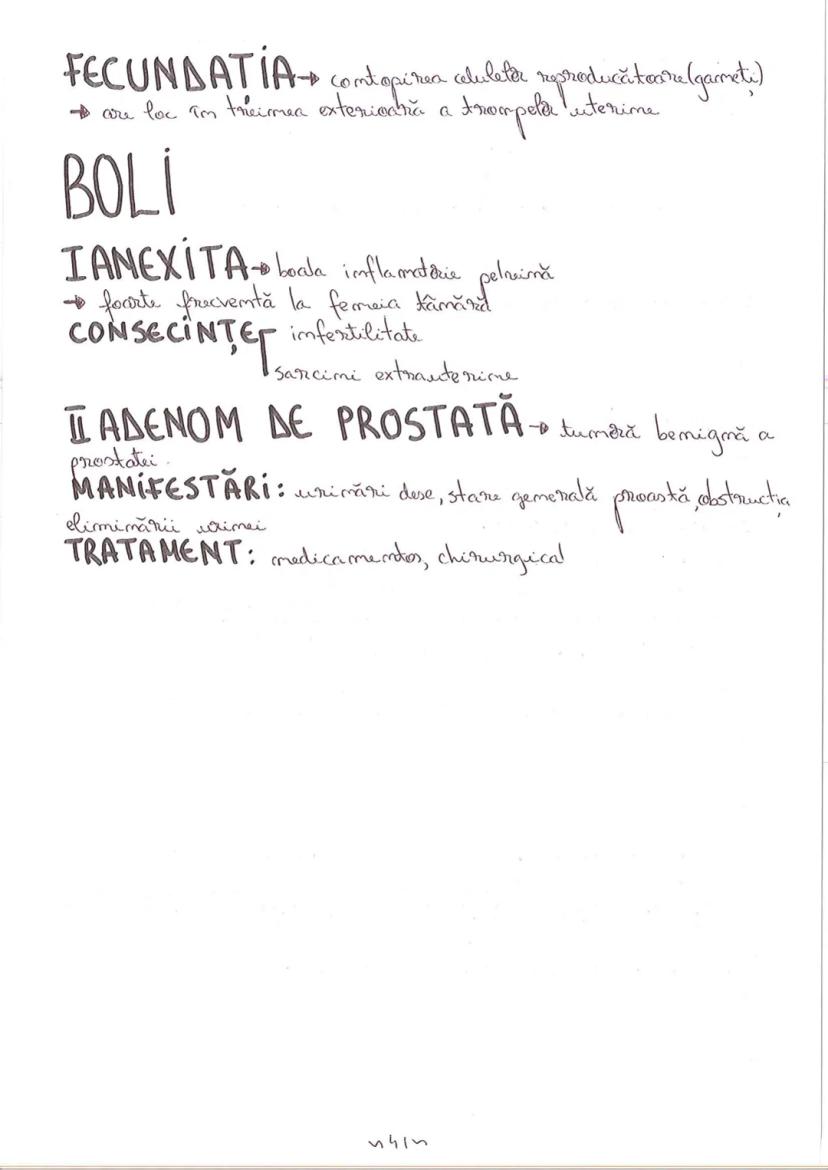 FECUNDATIA→ contopirea celulelor reproducătoare(gameți)
→ are loc în treimea exterioară a trompelor uterine
BOLI
I ANEXITA→ boala inflamatorie pelvină
→ foarte frecventă la femeia tânără
CONSECINȚE infertilitate
sarcini extrauterine
II ADENOM DE PROSTATĂ→ tumoră benignă a
prostatei.
MANIFESTĂRI: urinări dese, stare generală proastă, obstrucția
eliminării urinei
TRATAMENT: medicamentos, chirurgical